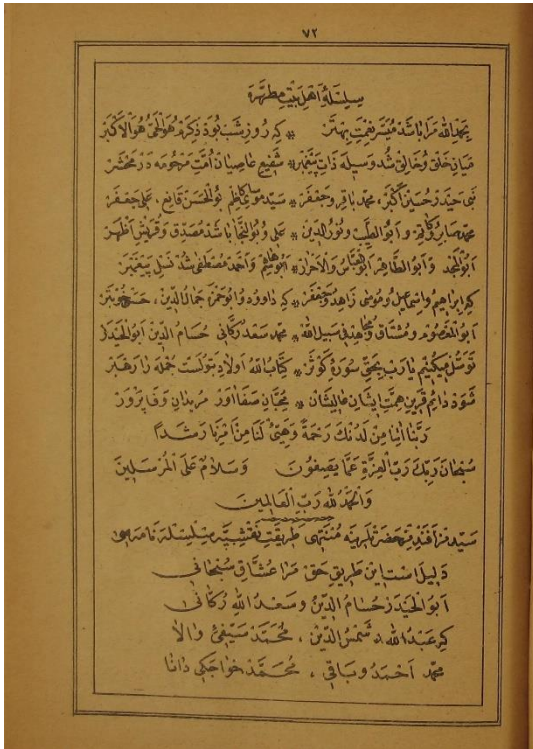 ٧٢
سِلسِلَهٔ اَهلِ بَيتِ مُطَهَّرَه
بِحَمدِ الله مَرَا بَاشَد مُيَسَّر نِعمَتِ بِهتَر * كِه رُوز شَب بُوَد ذِكرَم هُوَ الحَیُّ هُوَ الاَكبَر
مِيَانِ خَلق وُ خَالِق شُد وَسِيلَه ذَاتِ پَيغَمبَر * شَفِيعِ عَاصِيَان اُمَّت مَرحُومَه دَر مَحشَر
نَبِی حَيدَر حُسَين اَكبَر، مُحَمَّد بَاقِر وَ جَعفَر * سَيِّد مُوسَى كَاظِم بُو الحَسَن قَانِع، عَلِی جَعفَر
مُحَمَّد صَابِر وَ وَ اَبُو الطَّيِّب وَ نُورُ الدِّين * عَلِی وُ بُو النَّجَا بَاشَد مُصَدِّق وَ قُرَيش اَظهَر
اَبُو المَجد وَ اَبُو الطَّاهِر اَبُو العَبَّاس وَ الاَحرَار * اَبُو هَاشِم وَ اَحمَد مُصطَفَى شُد نَسلِ پَيغَمبَر
كِه اِبرَاهِيم وَ اِسمَاعِيل وَ مُوسَى زَاهِد وَ جَعفَر * كِه دَاوُود وَ اَبُو حَمزَه جَمَالُ الدِّين،
اَبُو المَنصُور وَ مُشتَاق وَ مُجَاهِد فِی سَبِيلِ الله * مُحَمَّد سَعد رَكَّانِی حُسَامُ الدِّين اَبُو الحَيدَر
تَوَسُّل مِيكُنِيم يَا رَب بِحَقِّ سُورَهٔ كَوثَر * كِتَابُ الله اَولَادِ بَتُولَست جُملَه رَا رَهبَر
شَوَد دَائِم قَرِينِ هِمَّتِ اِيشَان * مُحِبَّانِ صَفَا اَور مُرِيدَانِ وَفَا پَروَر
رَبَّنَا اٰتِنَا مِن لَدُنكَ رَحمَةً وَهَيِّئ لَنَا مِن اَمرِنَا رَشَدًا
سُبحَانَ رَبِّكَ رَبِّ العِزَّةِ عَمَّا يَصِفُونَ وَسَلَامٌ عَلَى المُرسَلِينَ
وَالحَمدُ لله رَبِّ العَالَمِينَ
سَيِّدمز اَفَندِمز حَضرَتلَرِينَه مُنتَهِی طَرِيقَتِ نَقشِيَّه سِلسِلَه نَامَه سِی
دَلِيلَ است اين طَرِيقِ حَق مَرَا عُشَّاقِ سُبحَانِی
اَبُو الحَيدَر حُسَامُ الدِّين وَ سَعدُ الله رَكَّانِی
كِه عَبدُ الله شَمسُ الدِّين، مُحَمَّد سَيفِیُّ وَالَا
مُحَمَّد اَحمَد وَ بَاقِی، مُحَمَّد خوَاجَكِی دَانَا